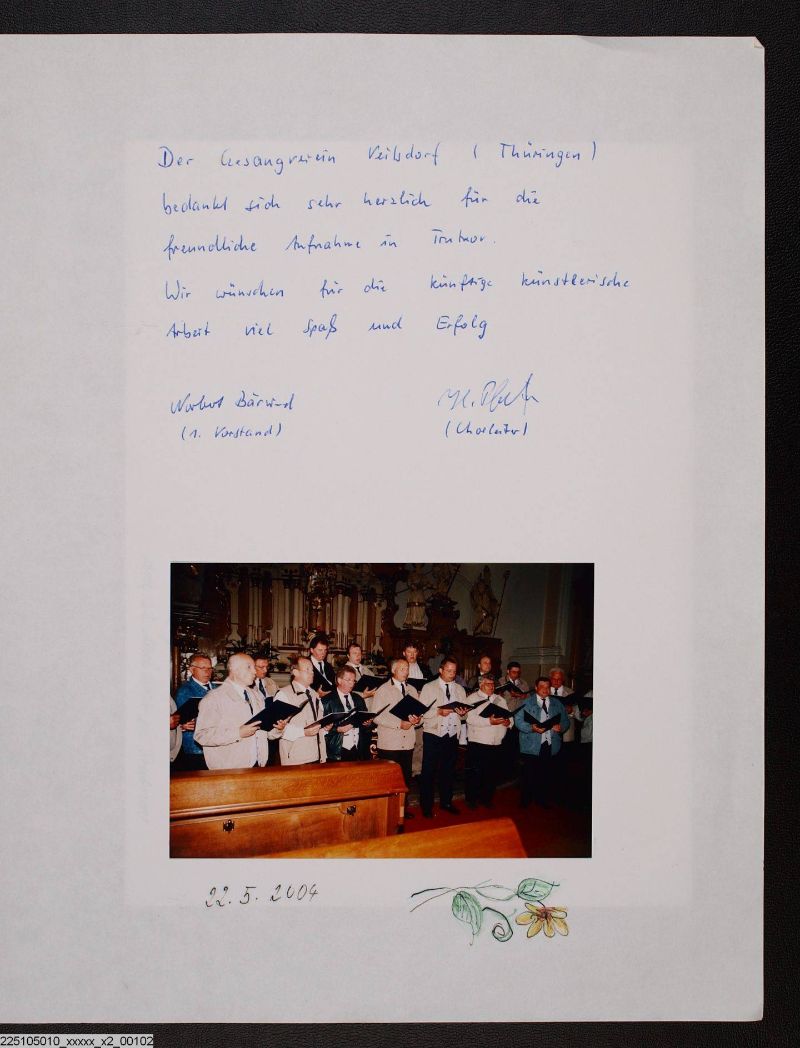 Der Gesangverein Veilsdorf (Thüringen)
bedankt sich sehr herzlich für die
freundliche Aufnahme in Trutnov.
Wir wünschen für die künftige künstlerische
Arbeit viel Spaß und Erfolg
Norbert Bärwind
(1. Vorstand) (Chorleiter)
22.5.2004
225105010_xxxxx_x2_00102